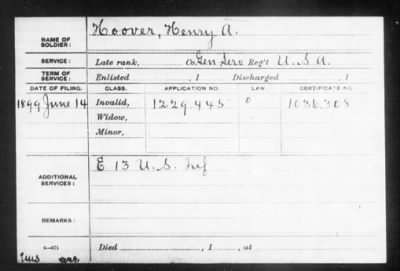 NAME OF SOLDIER: Hoover, Henry A.
SERVICE: Late rank, Co. Gen Serv Reg't U.S.A.
TERM OF SERVICE: Enlisted , 1 Discharged , 1
DATE OF FILING. CLASS. APPLICATION NO. LAW CERTIFICATE NO.
1899 June 14 Invalid, 1229.445 0 1036.303
Widow,
Minor,
ADDITIONAL SERVICES: E 13 U.S. Inf
REMARKS:
Died , 1 , at